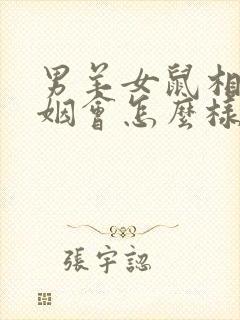 男羊女鼠相
姻會怎麼樣
張宇認